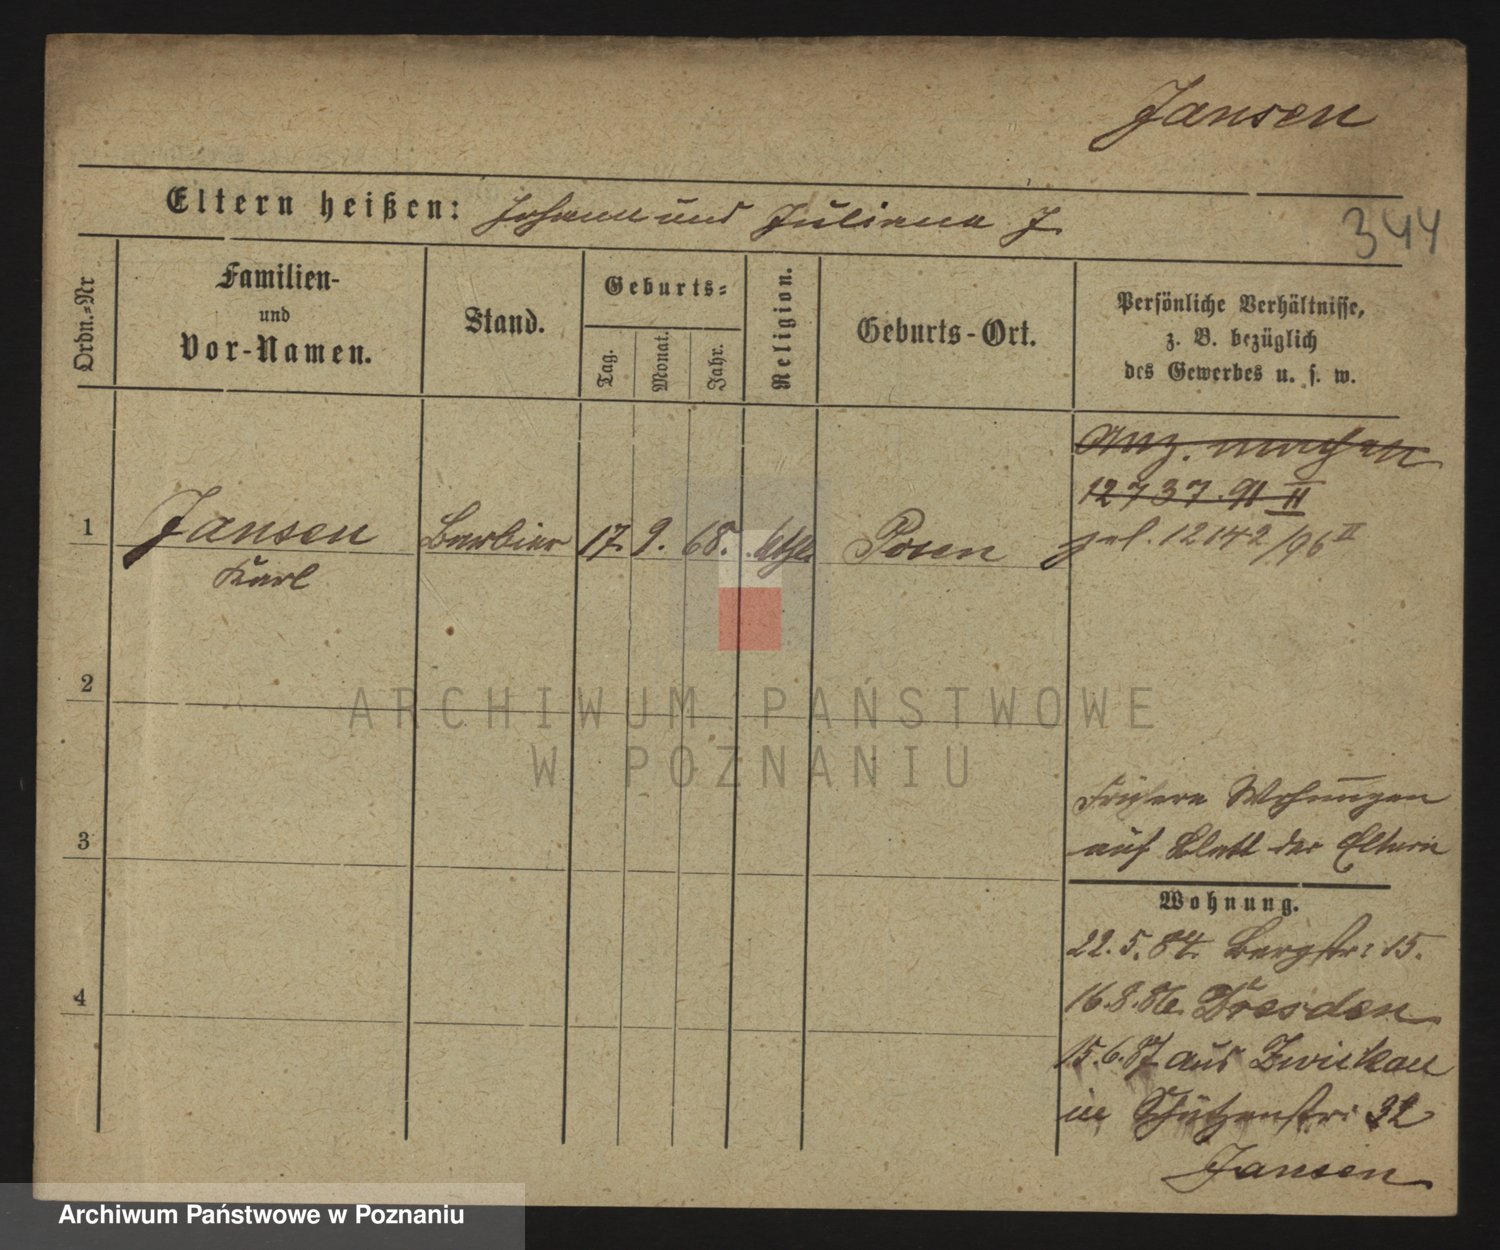 Jansen
Eltern heißen: Johann und Juliana J.
344
Ordn.-Nr
Familien-
und
Vor-Namen.
Stand.
Geburts-
Tag.
Monat.
Jahr.
Religion.
Geburts-Ort.
Persönliche Verhältnisse,
z. B. bezüglich
des Gewerbes u. s. w.
Anz. machen
12737.91 II
1 Jansen Barbier 17. 9. 68. kth. Posen
Karl
12142/96 II
2
ARCHIWUM PAŃSTWOWE
W POZNANIU
3
Frühere Wohnungen
auf Blatt der Eltern
Wohnung.
22.5.84. Bergstr: 15.
4
16.8.86. Dresden
15.6.87 aus Zwickau
in Schützenstr: 32
Jansen
Archiwum Państwowe w Poznaniu